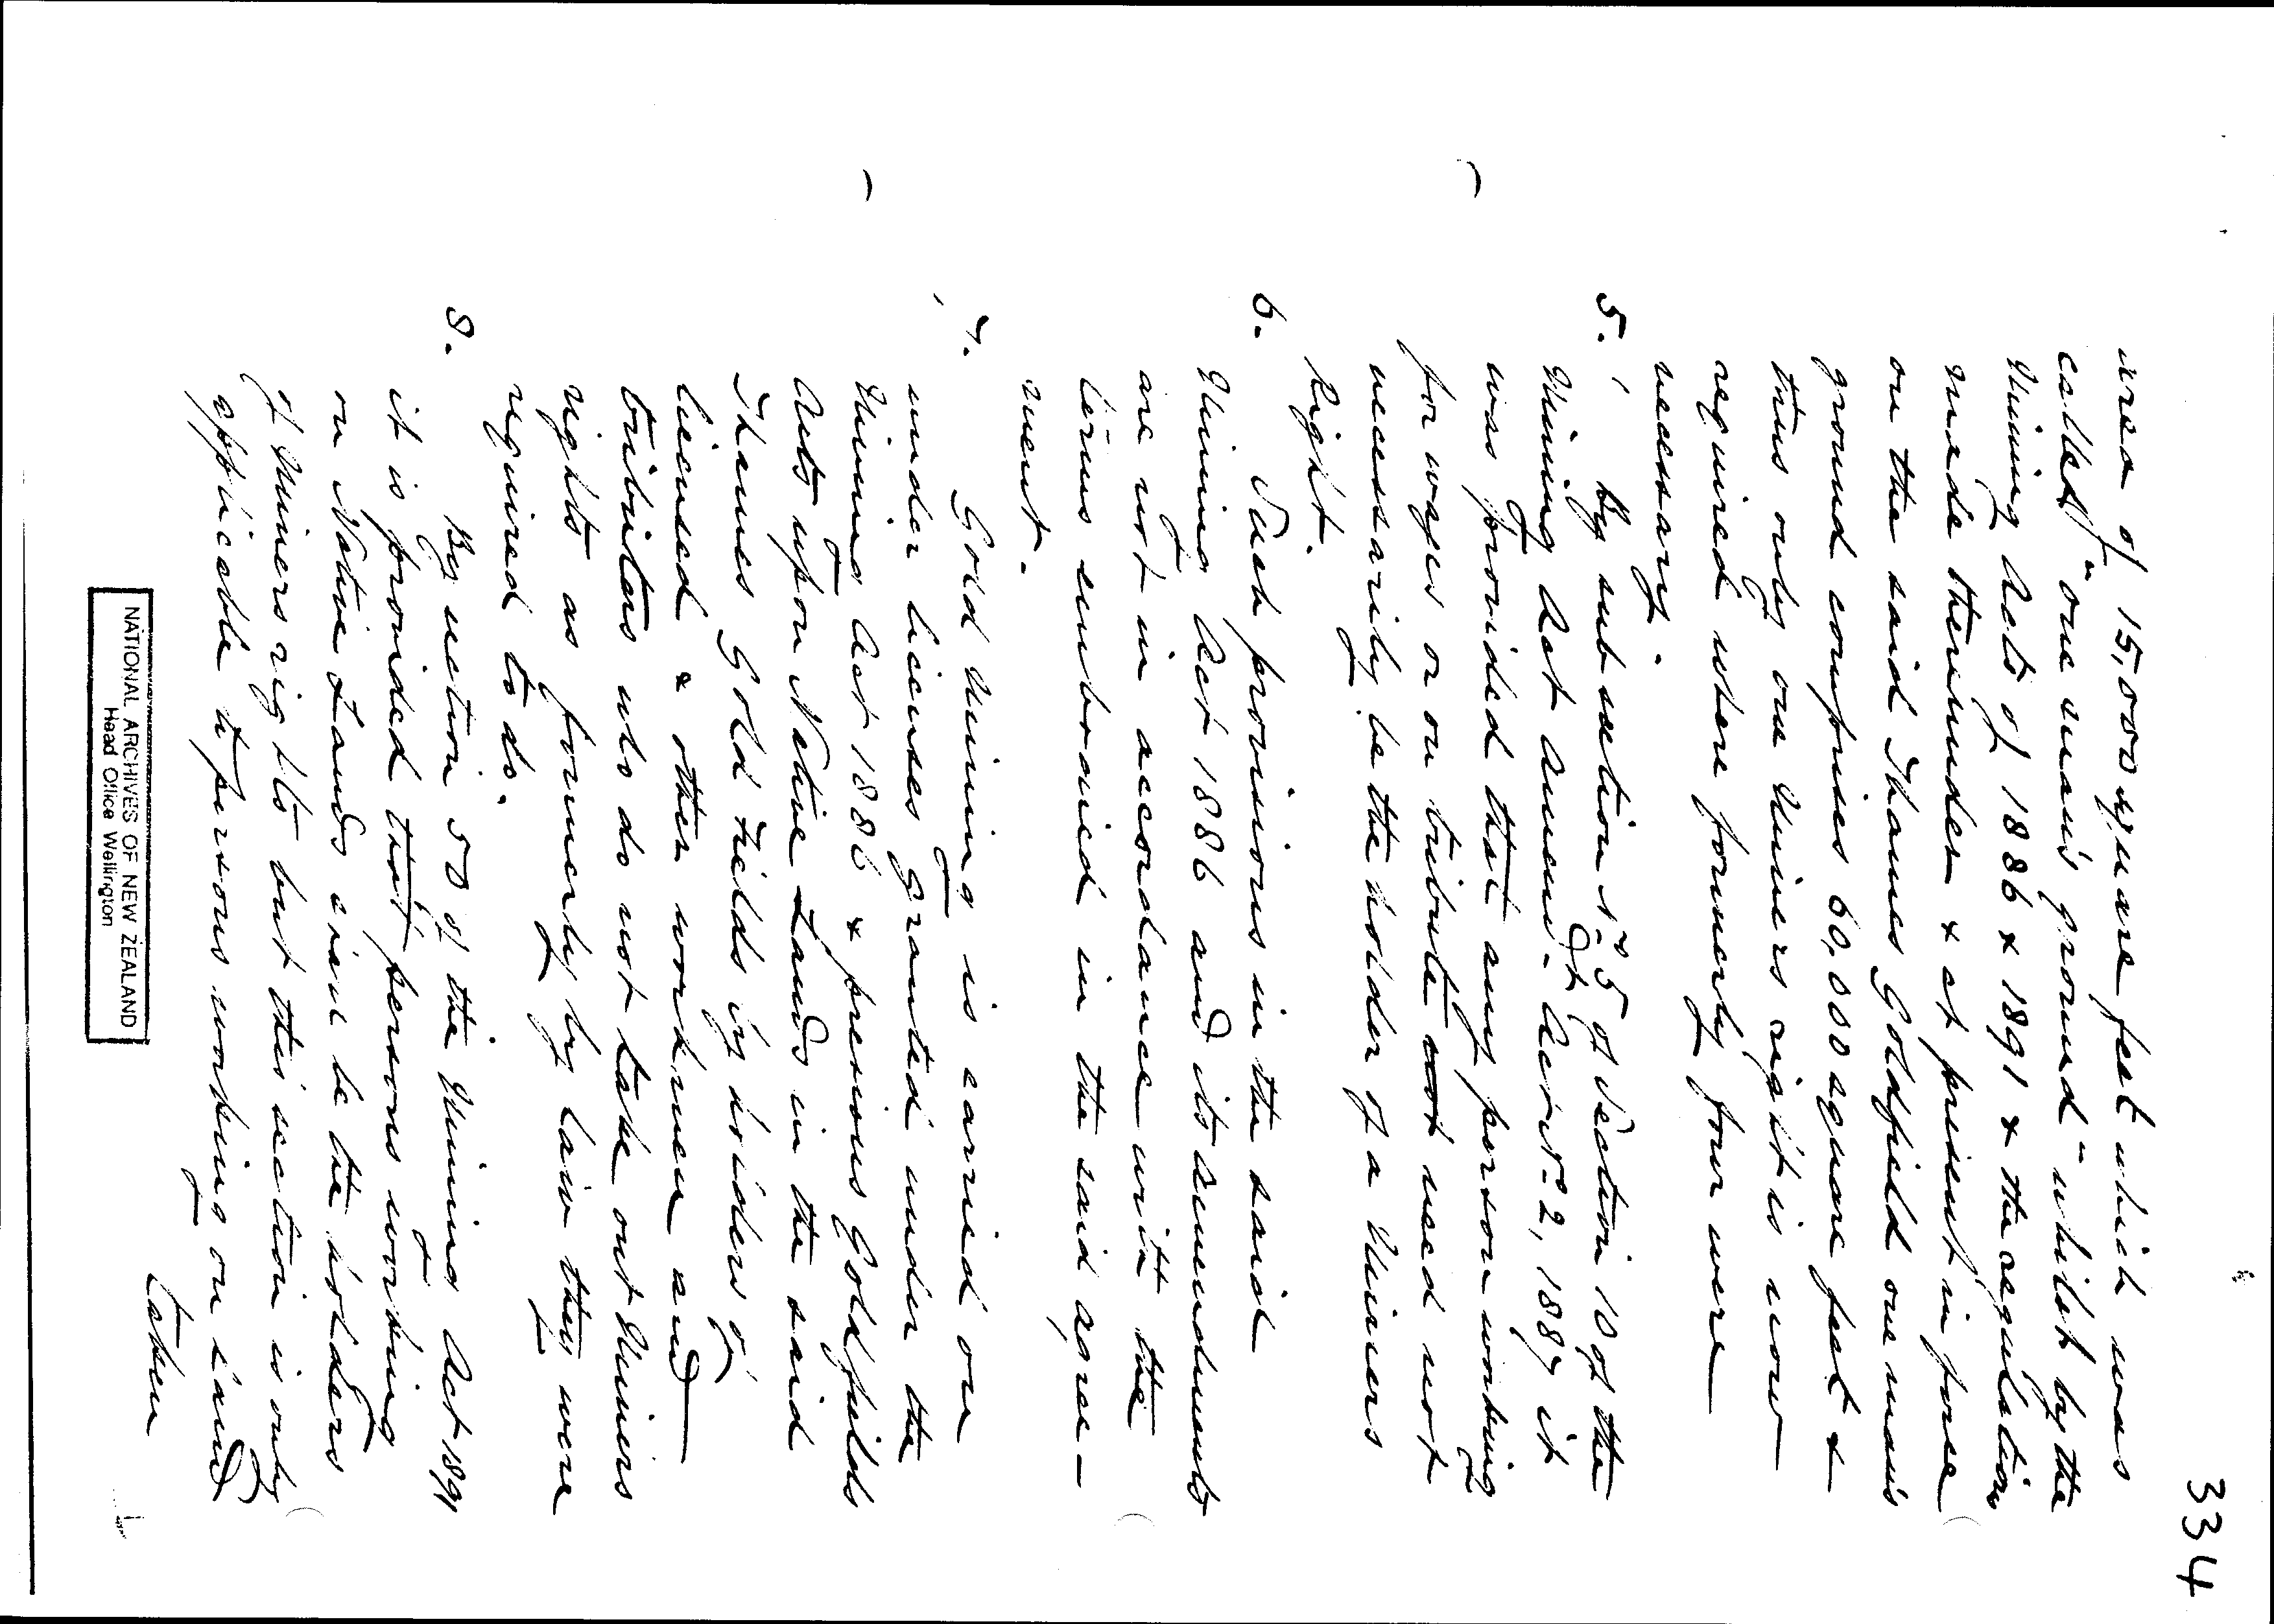 334
area of 15,000 square feet which was
called "one man's ground" whilst by the
Mining Acts of 1886 & 1891 & the regulations
made thereunder & at present in force
on the said Thames Goldfield one man's
ground comprises 60,000 square feet &
thus only one Miners right is now
required where formerly four were
necessary.
5. By sub section No 5 of Section 10 of the
Mining Act Amend. Act No 2, 1887 it
was provided that any person working
for wages or on tribute need not
necessarily be the holder of a Miners
Right.
6. Such provisions in the said
Mining Act 1886 and its amendments
are not in accordance with the
terms embodied in the said agree-
ment.
7. Gold Mining is carried on
under licenses granted under the
Mining Act 1886 & previous Goldfields
Acts upon Native Lands in the said
Thames Gold Fields by holders of
licensed & other workmen and
tributers who do not take out Miners
rights as formerly by law they were
required to do.
8. By section 50 of the Mining Act 1891
it is provided that persons working
on Native Lands shall be the holders
of Miners rights but this section is only
applicable to persons working on land
taken
NATIONAL ARCHIVES OF NEW ZEALAND
Head Office Wellington